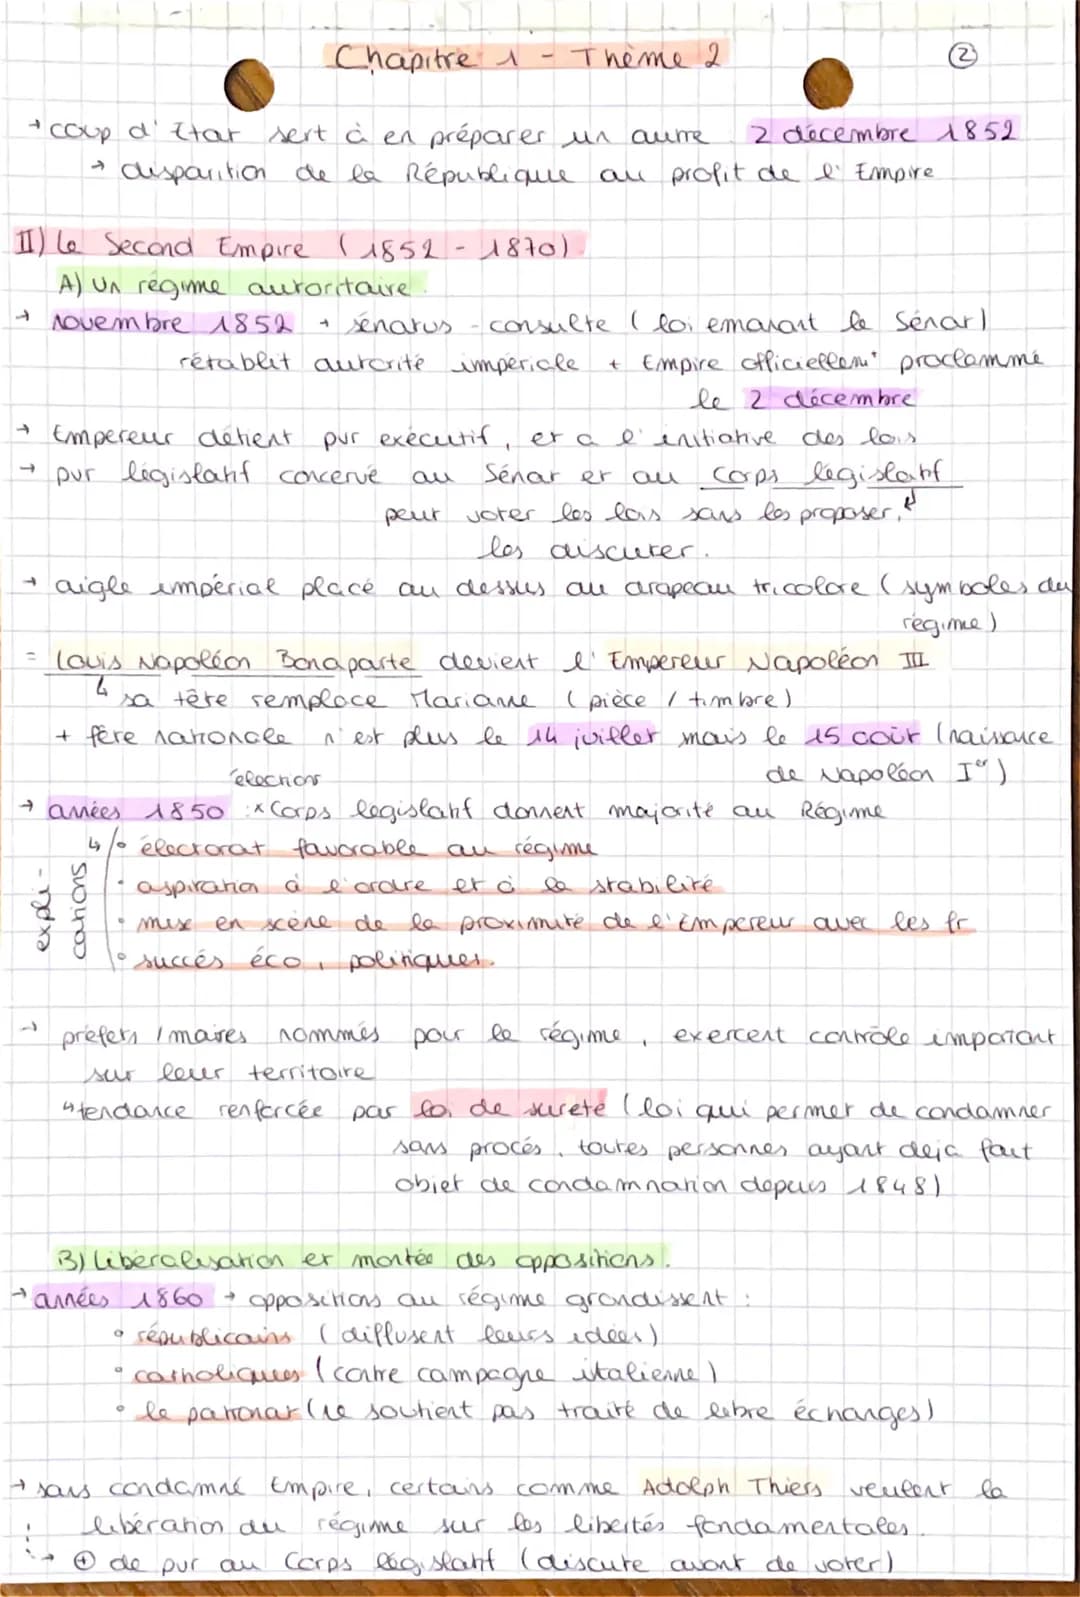 Chapitre 1 - Thème 2
2
→ coup d'Etat sert à en préparer un autre. 2 décembre 1852
→ disparition de la République au profit de l'Empire
II) Le Second Empire (1852 - 1870)
A) Un régime autoritaire.
→ novembre 1852 → sénatus-consulte (loi emanant le Sénat)
rétablit autorité impériale + Empire officiellemt proclammé
le 2 décembre
→ Empereur détient pvr exécutif, et a l'initiative des lois
→ pvr législatif concervé au Sénat et au Corps législatif
peut voter les lois sans les proposer,
les discuter.
→ aigle impérial placé au dessus du drapeau tricolore (symboles du
régime)
= Louis Napoléon Bonaparte devient l'Empereur Napoléon III
↳ sa tête remplace Marianne (pièce / timbre)
+ fête nationale n'est plus le 14 juillet mais le 15 août (naissance
de Napoléon Ier)
élections
→ années 1850 : x Corps legislatif donnent majorité au Régime
↳ • électorat favorable au régime
• aspiration à l'ordre et à la stabilité
• mise en scène de la proximité de l'Empereur avec les fr
• succés éco, politiques.
expli-
cations
→ préfets / maires nommés pour le régime, exercent contrôle important
sur leur territoire
↳ tendance renforcée par loi de sureté (loi qui permet de condamner
sans procés, toutes personnes ayant deja fait
objet de condamnation depuis 1848)
B) Libéralisation et montée des oppositions.
→ années 1860 → oppositions au régime grandissent :
• républicains (diffusent leurs idées)
• catholiques (contre campagne italienne)
• le patronat (ne soutient pas traité de libre échanges)
→ sans condamné Empire, certains comme Adolph Thiers veulent la
libération du régime sur les libertés fondamentales.
→ ⊕ de pvr au Corps législatif (discute avant de voter)